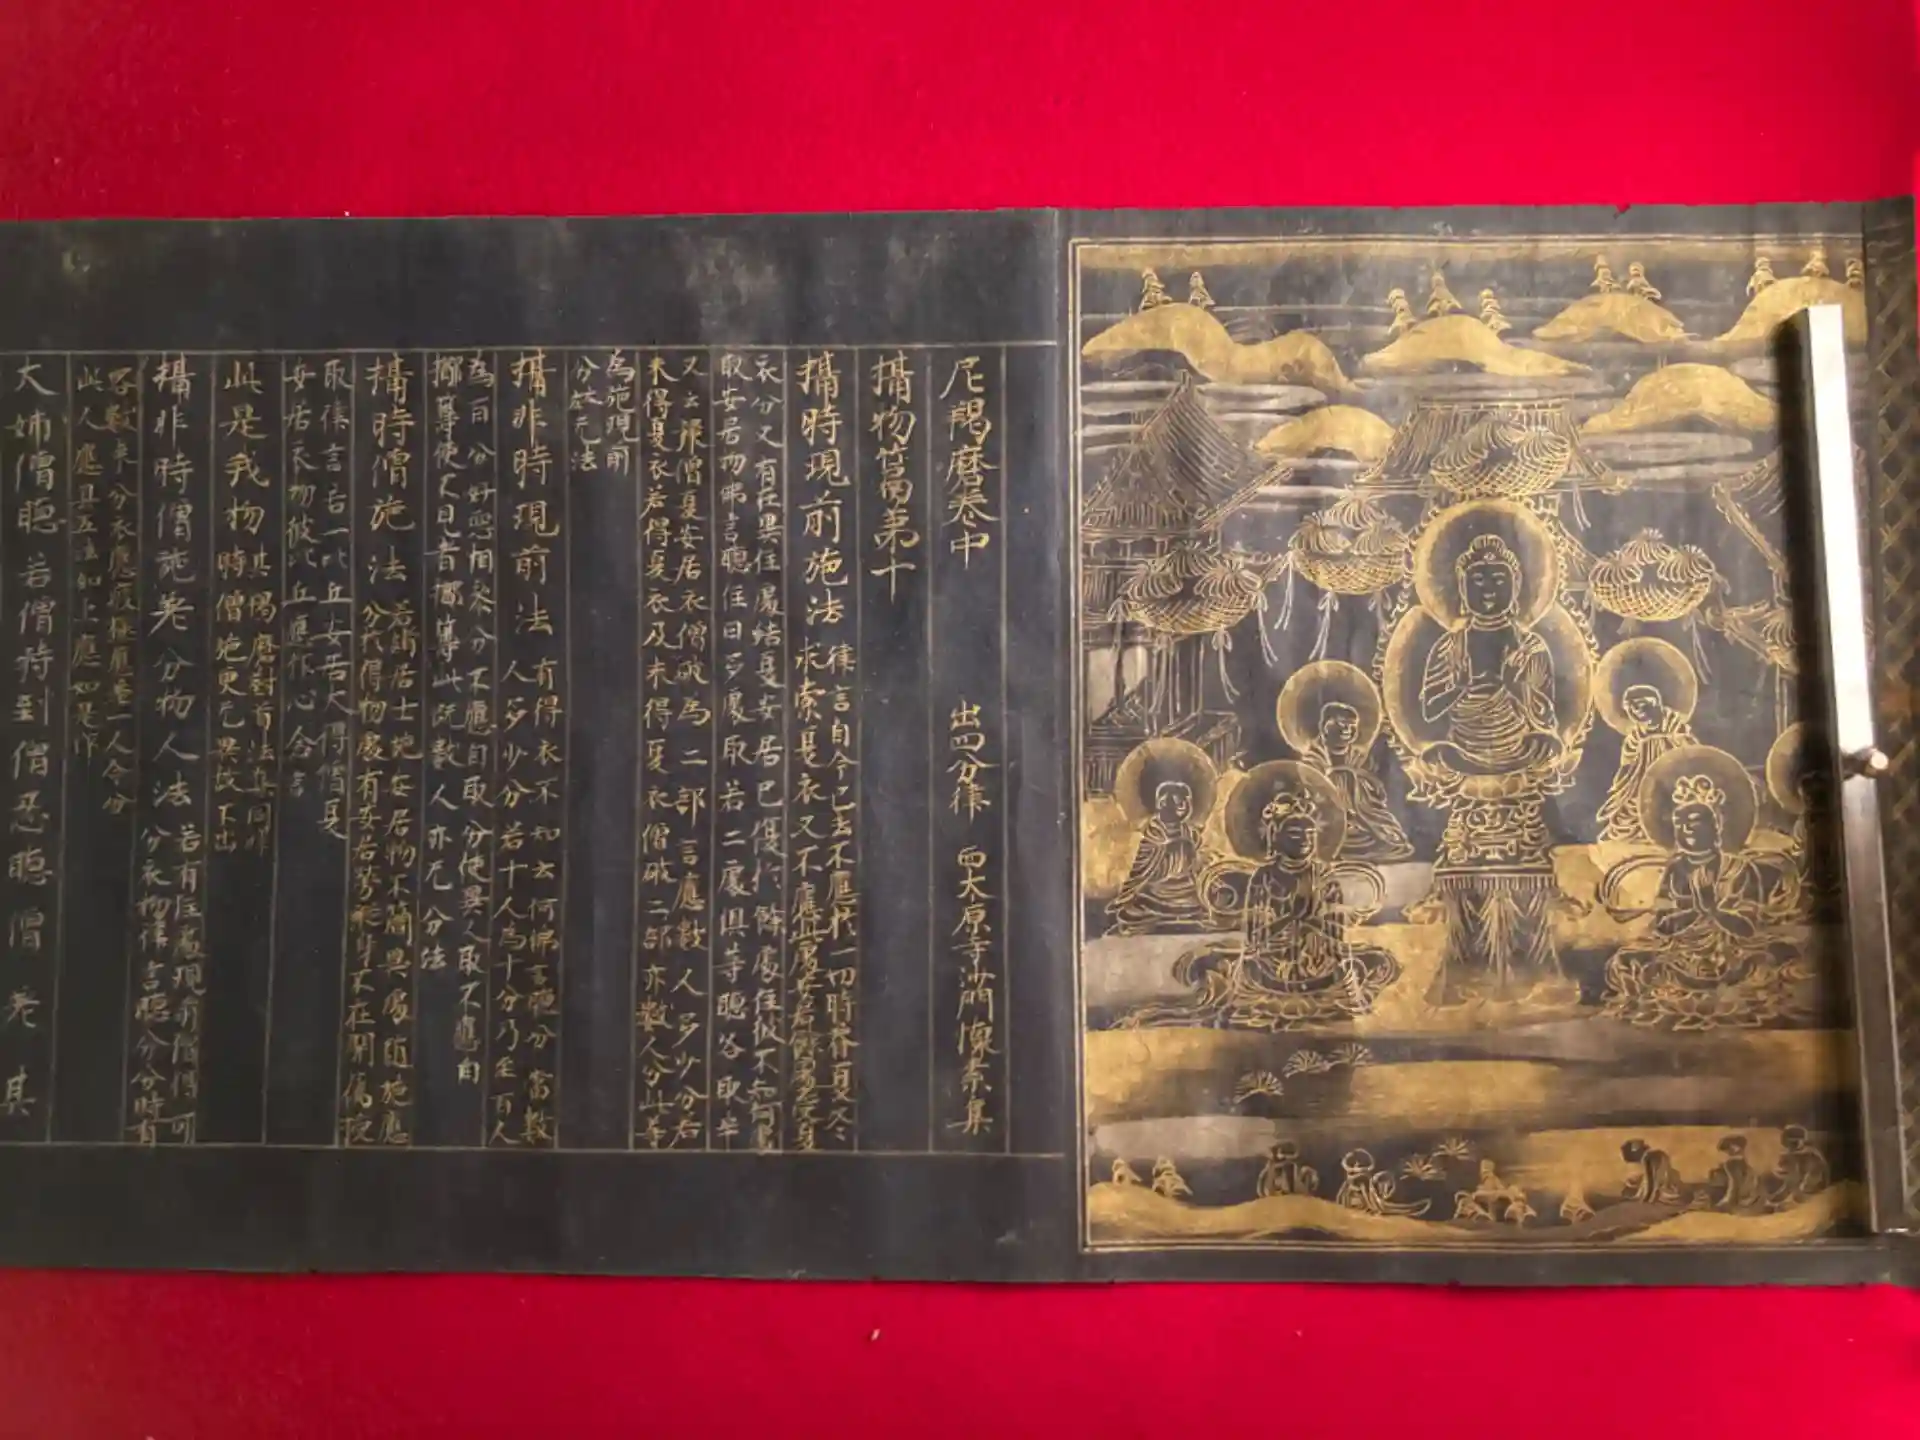 尼羯磨卷中 出四分律 西大原寺沙門懷素集
攝物篇第十
攝時現前施法 律言自今已去不應於一切時
求索是衣又不應此處安居餘處受
衣分又有在異住處結夏安居已復於餘處住彼不知何處
取安居物佛言聽住日多處取若二處俱等聽各取半
又云張僧夏安居衣僧破為二部言應數人多少分若
未得夏衣若得夏衣及未得夏衣僧破二部亦數人分此等
為施現前
分故无法
攝非時現前法 有得衣不知云何佛言聽分當數
人多少分若十人為十分乃至百人
為百分好惡相參分不應自取分使異人取不應自
擲籌使不見者擲籌此既數人亦无分法
攝時僧施法 若諸居士施安居物不簡異處隨施應
分衣得物處有
取律言若一比丘安居大得僧夏
安居衣物彼比丘應作心念言
此是我物 其羯磨對首法其同作
時僧施更无異故不出
攝非時僧施差分物人法 若有住處現前僧得可
分衣物律言聽分分時有
客數來分衣應疲極應差一人令分
此人應具五法如上應如是作
大姊僧聽若僧時到僧忍聽僧差其